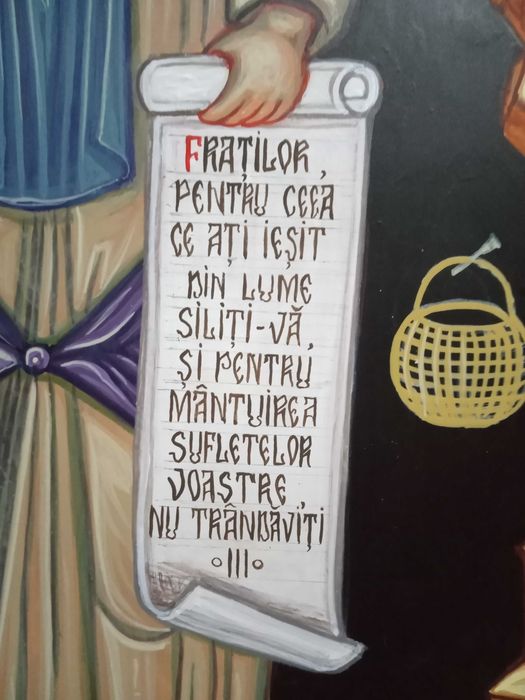 FRAȚILOR,
PENTRU CEEA
CE AȚI IEȘIT
DIN LUME
SILIȚI-VĂ,
ȘI PENTRU
MÂNTUIREA
SUFLETELOR
VOASTRE,
NU TRÂNDĂVIȚI